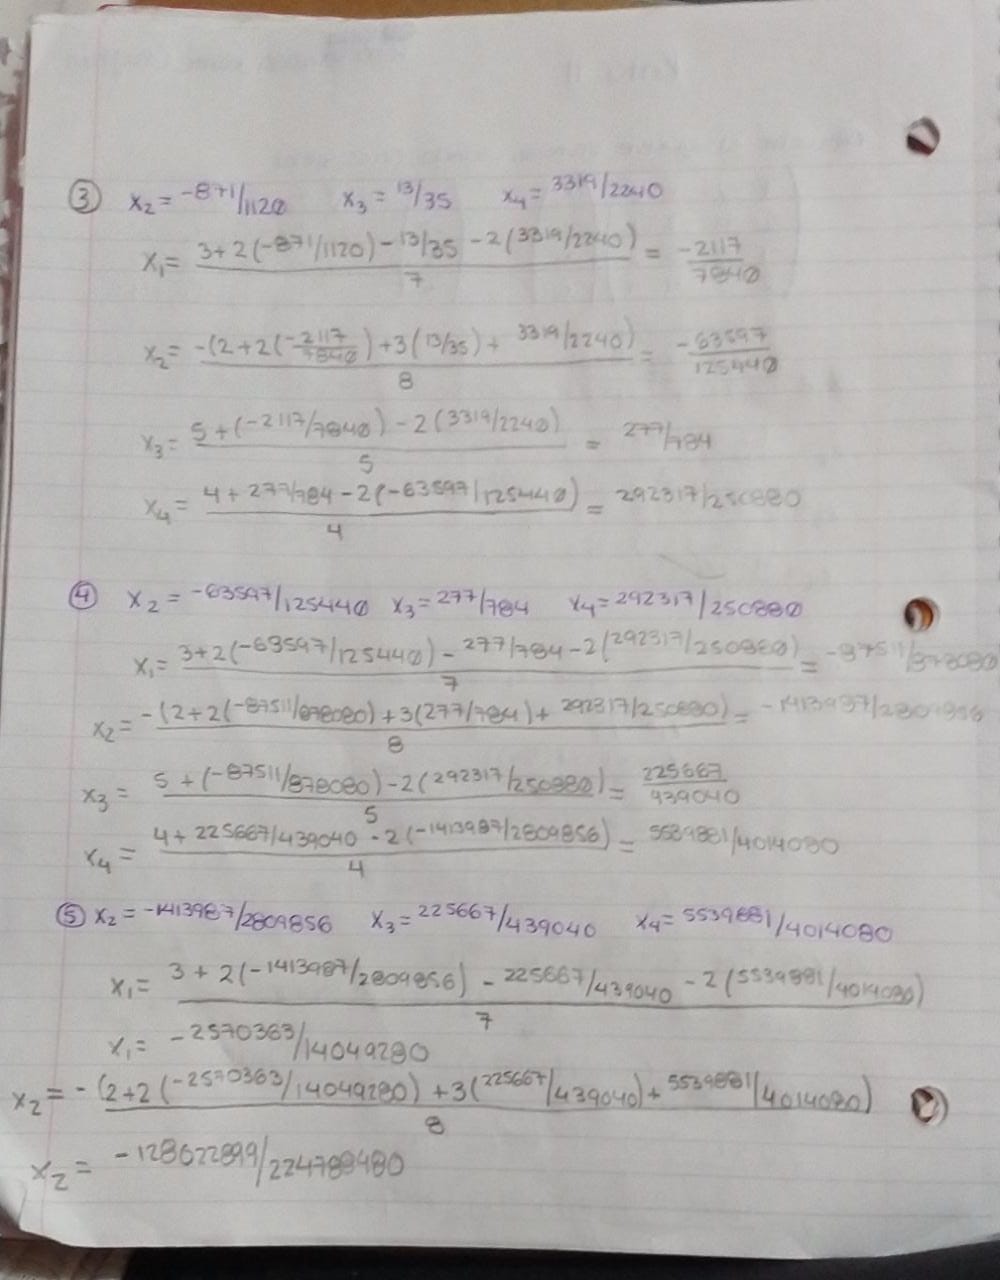 ③ x₂ = -871/1120 x₃ = 13/35 x₄ = 3319/2240
x₁ = 3+2(-871/1120)-13/35 -2(3319/2240) / 7 = -2117/7840
x₂ = -(2+2(-2117/7840)+3(13/35)+ 3319/2240) / 8 = -63597/125440
x₃ = 5+(-2117/7840)-2(3319/2240) / 5 = 277/784
x₄ = 4+277/784-2(-63597/125440) / 4 = 292317/250880
④ x₂ = -63597/125440 x₃=277/784 x₄=292317/250880
x₁ = 3+2(-63597/125440)-277/784-2(292317/250880) / 7 = -87511/878080
x₂ = -(2+2(-87511/878080)+3(277/784)+ 292317/250880) / 8 = -1413987/2809856
x₃ = 5+(-87511/878080)-2(292317/250880) / 5 = 225667/439040
x₄ = 4+225667/439040 -2(-1413987/2809856) / 4 = 5539881/4014080
⑤ x₂ = -1413987/2809856 x₃ = 225667/439040 x₄ = 5539881/4014080
x₁ = 3+2(-1413987/2809856) - 225667/439040 - 2(5539881/4014080) / 7
x₁ = -2570363/14049280
x₂ = -(2+2(-2570363/14049280)+3(225667/439040)+5539881/4014080) / 8
x₂ = -128622899/224788480